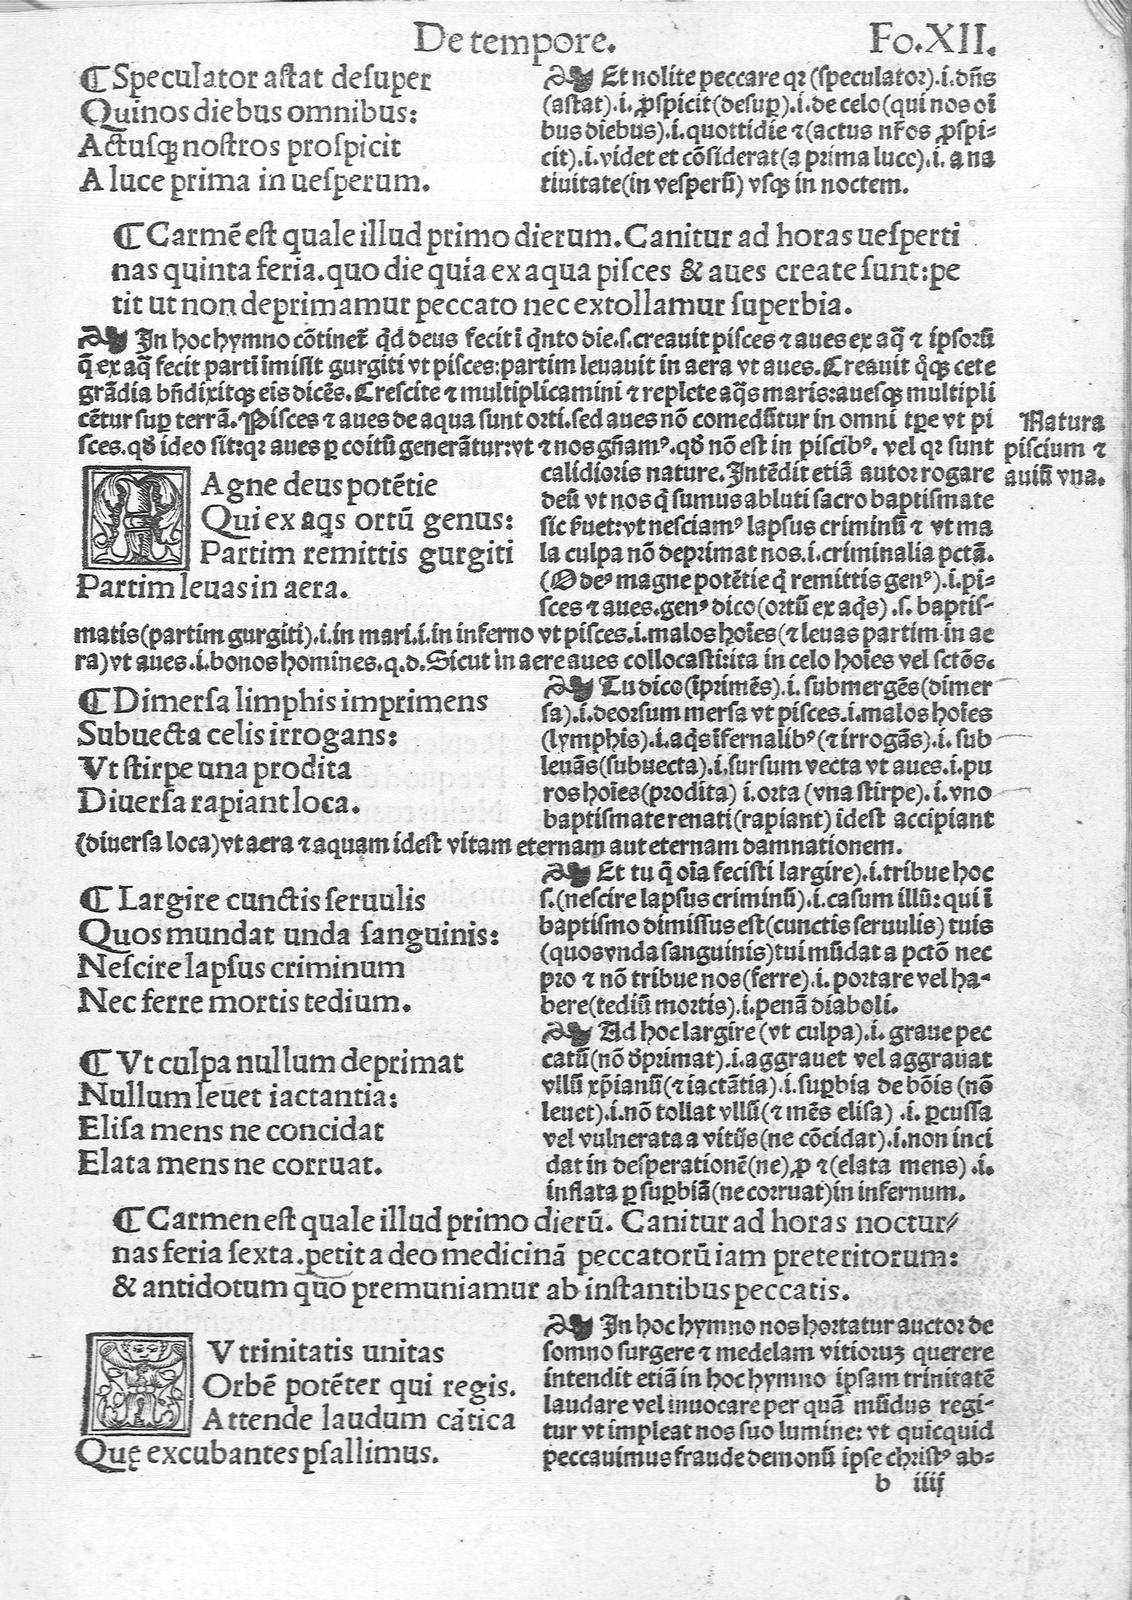 De tempore. Fo.XII.
¶ Speculator astat desuper
Quinos diebus omnibus:
Actusq; nostros prospicit
A luce prima in uesperum.
Et nolite peccare qr (speculator).i.dñs
(astat).i.ꝓspicit(desuꝑ).i.de celo(qui nos oī
bus diebus).i.quottidie ⁊(actus nr̃os ꝓspi-
cit).i.videt et cōsiderat(a prima luce).i. a na
tiuitate(in vesperū) vsq; in noctem.
¶ Carmē est quale illud primo dierum. Canitur ad horas uesperti
nas quinta feria. quo die quia ex aqua pisces & aues create sunt: pe
tit ut non deprimamur peccato nec extollamur superbia.
In hoc hymno cōtinet̄ qd̄ deus fecit ī qn̄to die.s.creauit pisces ⁊ aues ex aq̄ ⁊ ipsorū
q̄ ex aq̄ fecit partī imisit gurgiti vt pisces: partim leuauit in aera vt aues. Creauit q̊q; cete
grādia bn̄dixitq; eis dicēs. Crescite ⁊ multiplicamini ⁊ replete aq̄s maris: auesq; multipli
cētur suꝑ terrā. Pisces ⁊ aues de aqua sunt orti. sed aues nō comedūtur in omni tꝑe vt pi
sces. qđ ideo sit: qr aues ꝑ coitū generātur: vt ⁊ nos gn̄amꝰ. qđ nō est in piscibꝰ. vel qr sunt
Natura
piscium ⁊
auiū vna.
MAgne deus potētie
Qui ex aqs ortū genus:
Partim remittis gurgiti
Partim leuas in aera.
calidioris nature. Intēdit etiā autor rogare
deū vt nos q̄ sumus abluti sacro baptismate
sic ẜuet: vt nesciamꝰ lapsus criminū ⁊ vt ma
la culpa nō deprimat nos.i.criminalia pctā.
(O deꝰ magne potētie q̄ remittis genꝰ).i.pi-
sces ⁊ aues. genꝰ dico(ortū ex aq̄s).s. baptis-
matis(partim gurgiti).i.in mari.i.in inferno vt pisces.i.malos hoīes(⁊ leuas partim in ae
ra)vt aues.i.bonos homines.q.d. Sicut in aere aues collocasti: ita in celo hoīes vel sctōs.
¶ Dimersa limphis imprimens
Subuecta celis irrogans:
Vt stirpe una prodita
Diuersa rapiant loca.
Tu dico(īprimēs).i. submergēs(dimer
sa).i.deorsum mersa vt pisces.i.malos hoīes
(lymphis).i.aq̄s īfernalibꝰ(⁊ irrogās).i. sub
leuās(subuecta).i.sursum vecta vt aues.i.pu
ros hoīes(prodita) i.orta (vna stirpe).i.vno
baptismate renati(rapiant) idest accipiant
(diuersa loca)vt aera ⁊ aquam idest vitam eternam aut eternam damnationem.
¶ Largire cunctis seruulis
Quos mundat unda sanguinis:
Nescire lapsus criminum
Nec ferre mortis tedium.
Et tu q̄ oīa fecisti largire).i.tribue hoc
s.(nescire lapsus criminū).i.casum illū: qui ī
baptismo dimissus est(cunctis seruulis) tuis
(quos vnda sanguinis)tui mūdat a pctō nec
pro ⁊ nō tribue nos(ferre).i. portare vel ha-
bere(tediū mortis).i.penā diaboli.
¶ Vt culpa nullum deprimat
Nullum leuet iactantia:
Elisa mens ne concidat
Elata mens ne corruat.
Ad hoc largire (vt culpa).i. graue pec
catū(nō dṗrimat).i.aggrauet vel aggrauat
vllū xp̄ianū(⁊ iactātia).i.suꝑbia de bōis (nō
leuet).i.nō tollat vllū(⁊ mēs elisa) .i. ꝑcussa
vel vulnerata a vitijs(ne cōcidat).i.non inci
dat in desperationē(ne)ꝓ ⁊(elata mens) .i.
inflata ꝑ suꝑbiā(ne corruat)in infernum.
¶ Carmen est quale illud primo dierū. Canitur ad horas noctur-
nas feria sexta. petit a deo medicinā peccatorū iam preteritorum:
& antidotum quo premuniamur ab instantibus peccatis.
TV trinitatis unitas
Orbē potēter qui regis.
Attende laudum cātica
Quę excubantes psallimus.
In hoc hymno nos hortatur auctor de
somno surgere ⁊ medelam vitioruꝫ querere
intendit etiā in hoc hymno ipsam trinitatē
laudare vel inuocare per quā mūdus regi-
tur vt impleat nos suo lumine: vt quicquid
peccauimus fraude demonū ipse christꝰ ab-
b iiij